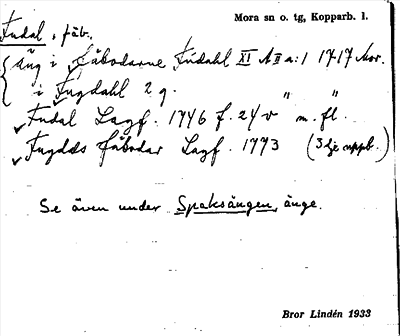 Fudal, fäb.
Mora sn o. tg, Kopparb. l.
Äng i Fäbodarne Fudahl XI A II a:1 1717 Mor.
i Fugdahl 2 g. " "
Fudal Lagf. 1746 f. 24 v m. fl.
Fugdds fäbodar Lagf. 1773 (3dje uppb.)
Se även under Spaksängen, änge.
Bror Lindén 1933